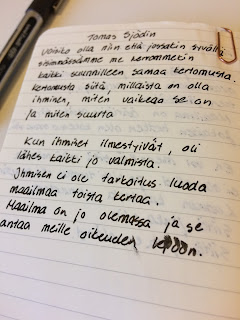 Tomas Sjödin
Voisiko olla niin että jossakin syvällä
sisimmässämme me kerromme­kin
kaikki suunnilleen samaa kertomusta.
kertomusta siitä, millaista on olla
ihminen, miten vaikeaa se on
ja miten suurta
Kun ihmiset ilmestyivät, oli
lähes kaikki jo valmista.
Ihmisen ei ole tarkoitus luoda
maailmaa toista kertaa.
Maailma on jo olemassa ja se
antaa meille oikeuden